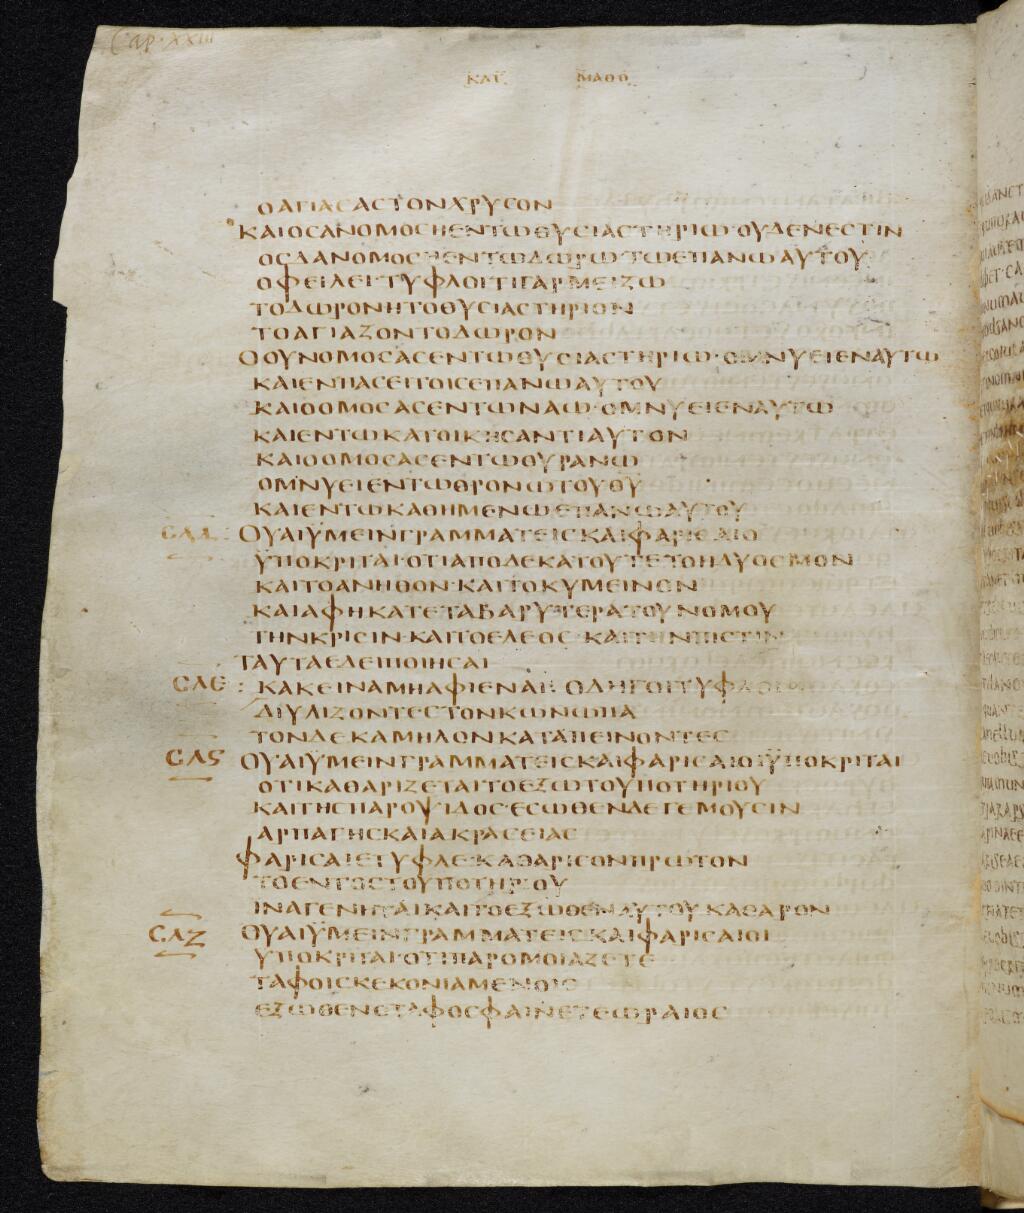 Cap. XXIII
ΚΑΤ ΜΑΘΘ
ΟΑΓΙΑCΑCΤΟΝΧΡΥCΟΝ
ΚΑΙΟCΑΝΟΜΟCΗΕΝΤΩΘΥCΙΑCΤΗΡΙΩ·ΟΥΔΕΝΕCΤΙΝ
ΟCΔΑΝΟΜΟCΗΕΝΤΩΔΩΡΩ·ΤΩΕΠΑΝΩΑΥΤΟΥ
ΟΦΕΙΛΕΙ·ΤΥΦΛΟΙΤΙΓΑΡΜΕΙΖΩ
ΤΟΔΩΡΟΝΗΤΟΘΥCΙΑCΤΗΡΙΟΝ
ΤΟΑΓΙΑΖΟΝΤΟΔΩΡΟΝ
ΟΟΥΝΟΜΟCΑCΕΝΤΩΘΥCΙΑCΤΗΡΙΩ·ΟΜΝΥΕΙΕΝΑΥΤΩ
ΚΑΙΕΝΠΑCΕΙΤΟΙCΕΠΑΝΩΑΥΤΟΥ
ΚΑΙΟΟΜΟCΑCΕΝΤΩΝΑΩ·ΟΜΝΥΕΙΕΝΑΥΤΩ
ΚΑΙΕΝΤΩΚΑΤΟΙΚΗCΑΝΤΙΑΥΤΟΝ
ΚΑΙΟΟΜΟCΑCΕΝΤΩΟΥΡΑΝΩ
ΟΜΝΥΕΙΕΝΤΩΘΡΟΝΩΤΟΥΘΥ
ΚΑΙΕΝΤΩΚΑΘΗΜΕΝΩΕΠΑΝΩΑΥΤΟΥ
CΛΔ: ΟΥΑΙΫΜΕΙΝΓΡΑΜΜΑΤΕΙCΚΑΙΦΑΡΙCΑΙΟ
ΫΠΟΚΡΙΤΑΙ·ΟΤΙΑΠΟΔΕΚΑΤΟΥΤΕΤΟΗΔΥΟCΜΟΝ
ΚΑΙΤΟΑΝΗΘΟΝ·ΚΑΙΤΟΚΥΜΕΙΝΟΝ
ΚΑΙΑΦΗΚΑΤΕΤΑΒΑΡΥΤΕΡΑΤΟΥΝΟΜΟΥ
ΤΗΝΚΡΙCΙΝ·ΚΑΙΤΟΕΛΕΟC·ΚΑΙΤΗΝΠΙCΤΙΝ
ΤΑΥΤΑΕΔΕΙΠΟΙΗCΑΙ
CΛΕ: ΚΑΚΕΙΝΑΜΗΑΦΙΕΝΑΙ· ΟΔΗΓΟΙΤΥΦΛΟΙ
ΔΙΥΛΙΖΟΝΤΕCΤΟΝΚΩΝΩΠΑ
ΤΟΝΔΕΚΑΜΗΛΟΝΚΑΤΑΠΕΙΝΟΝΤΕC
CΛϚ ΟΥΑΙΫΜΕΙΝΓΡΑΜΜΑΤΕΙCΚΑΙΦΑΡΙCΑΙΟΙΫΠΟΚΡΙΤΑΙ
ΟΤΙΚΑΘΑΡΙΖΕΤΑΙΤΟΕΞΩΤΟΥΠΟΤΗΡΙΟΥ
ΚΑΙΤΗCΠΑΡΟΨΙΔΟC·ΕCΩΘΕΝΔΕΓΕΜΟΥCΙΝ
ΑΡΠΑΓΗCΚΑΙΑΚΡΑCΕΙΑC
ΦΑΡΙCΑΙΕΤΥΦΛΕ·ΚΑΘΑΡΙCΟΝΠΡΩΤΟΝ
ΤΟΕΝΤΟCΤΟΥΠΟΤΗΡΙΟΥ
ΙΝΑΓΕΝΗΤΑΙΚΑΙΤΟΕΞΩΘΕΝΑΥΤΟΥΚΑΘΑΡΟΝ
CΛΖ ΟΥΑΙΫΜΕΙΝΓΡΑΜΜΑΤΕΙCΚΑΙΦΑΡΙCΑΙΟΙ
ΥΠΟΚΡΙΤΑΙ·ΟΤΙΠΑΡΟΜΟΙΑΖΕΤΕ
ΤΑΦΟΙCΚΕΚΟΝΙΑΜΕΝΟΙC
ΕΞΩΘΕΝΟΤΑΦΟCΦΑΙΝΕΤΕΩΡΑΙΟC